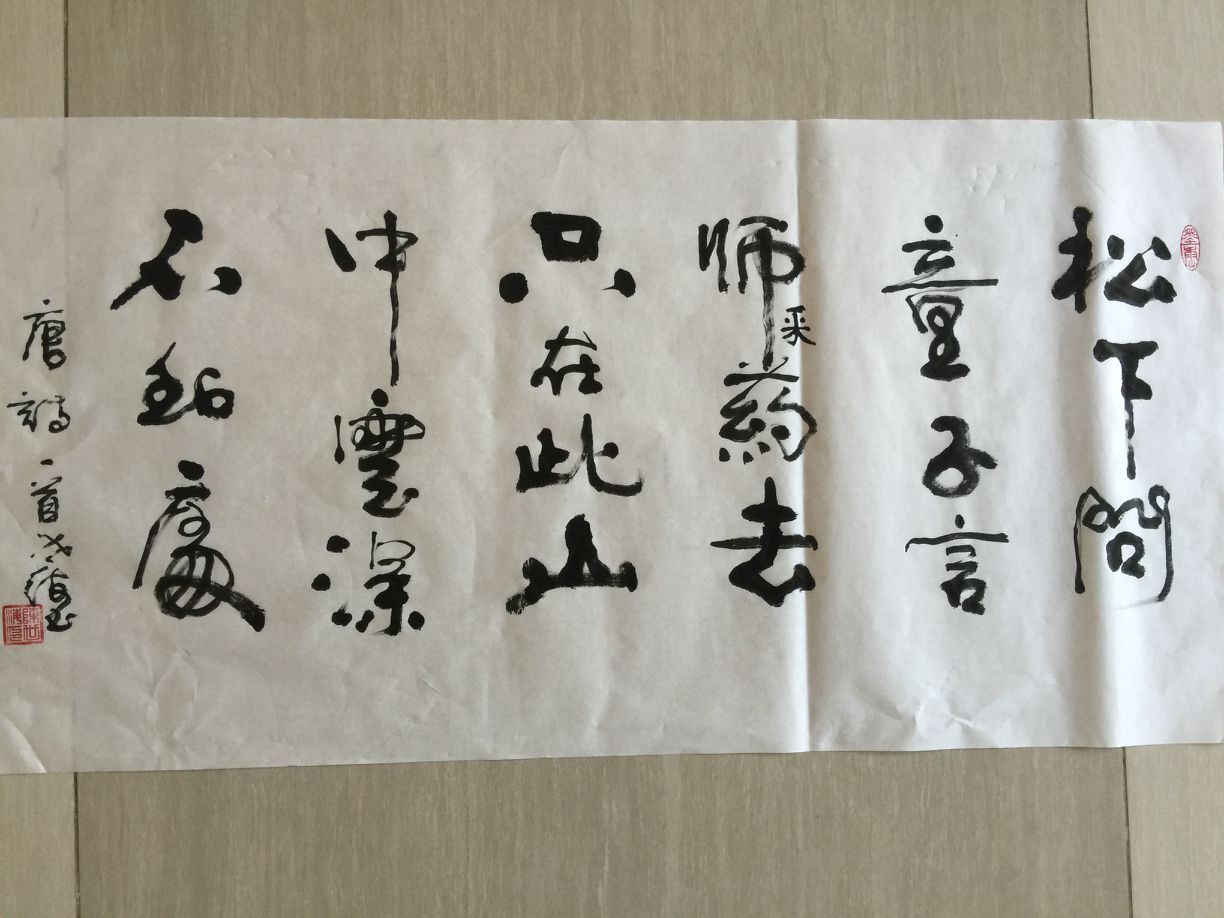 松下問
童子言
師采药去
只在此山
中雲深
不知處
唐詩一首